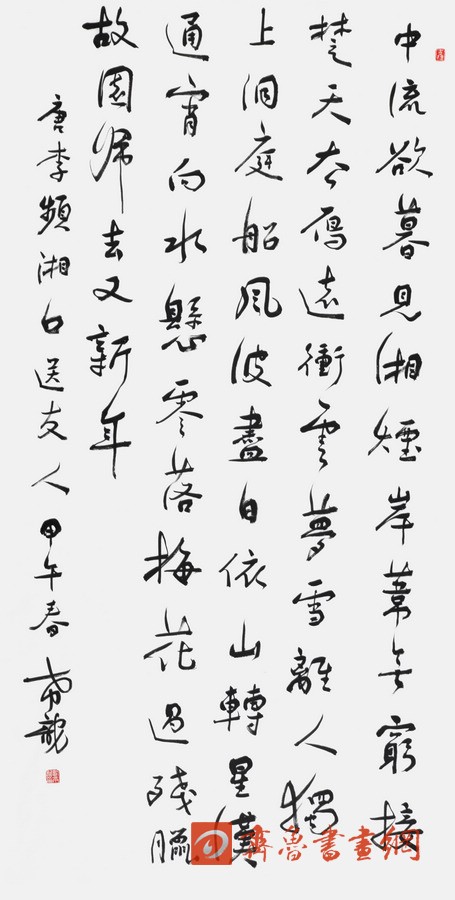 中流欲暮見湘煙岸葦無窮接
楚天去雁遠衝雲夢雪離人獨
上洞庭船風波盡日依山轉星漢
通宵向水懸零落梅花過殘臘
故園歸去又新年
唐李頻湘口送友人甲午春
齊魯書畫網